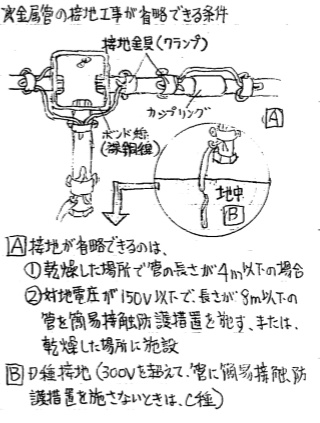 金属管の接地工事が省略できる条件
接地金具(クランプ)
カップリング
A
ボンド線
(裸銅線)
地中
B
A 接地が省略できるのは、
①乾燥した場所で管の長さが4m以下の場合
②対地電圧が150V以下で、長さが8m以下の
管を簡易接触防護措置を施す、または、
乾燥した場所に施設
B D種接地(300Vを超えて、管に簡易接触防
護措置を施さないときは、C種)